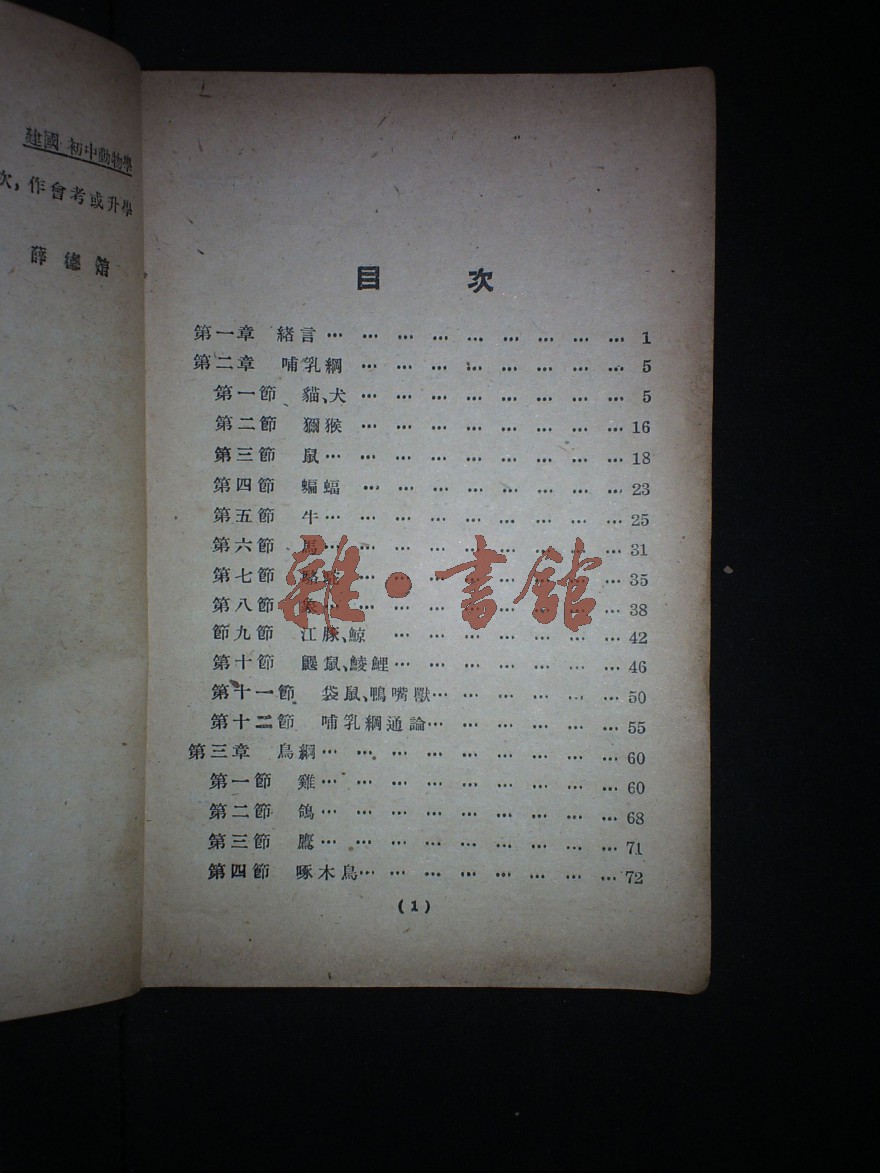 建國·初中動物學
次，作會考或升學
薛德焴
目 次
第一章 緒言… … … … … … … … … 1
第二章 哺乳綱 … … … … … … … … 5
第一節 貓、犬 … … … … … … … … 5
第二節 獼猴 … … … … … … … … 16
第三節 鼠… … … … … … … … … 18
第四節 蝙蝠 … … … … … … … … 23
第五節 牛… … … … … … … … … 25
第六節 馬… … … … … … … … … 31
第七節 駱駝… … … … … … … … 35
第八節 象… … … … … … … … … 38
節九節 江豚、鯨 … … … … … … … 42
第十節 鼴鼠、鯪鯉… … … … … … … 46
第十一節 袋鼠、鴨嘴獸… … … … … … 50
第十二節 哺乳綱通論… … … … … … 55
第三章 鳥綱… … … … … … … … … 60
第一節 雞… … … … … … … … … 60
第二節 鴿… … … … … … … … … 68
第三節 鷹… … … … … … … … … 71
第四節 啄木鳥… … … … … … … … 72
(1)
雜·書館